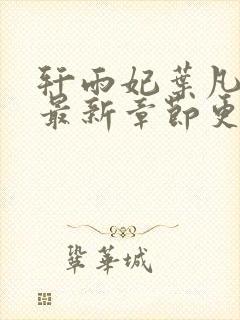 轩雨妃葉凡
最新章節更
巩華城